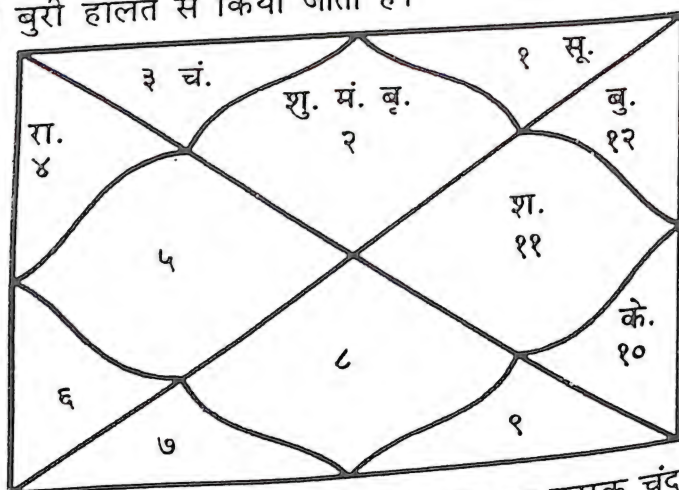 बुरी हालत से किया जाता है।
३ चं.
१ सू.
शु. मं. बृ.
२
रा.
४
बु.
१२
श.
११
५
के.
१०
८
६
७
९
चंद्र